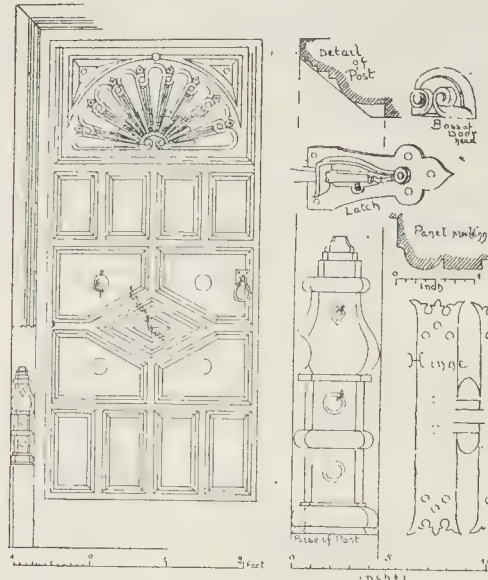 Detail
of
Post
Boss at
Door
head
Latch
Panel moulding
0 1
inch
Hinge
Base of Post
Feet
0 5 10
inches